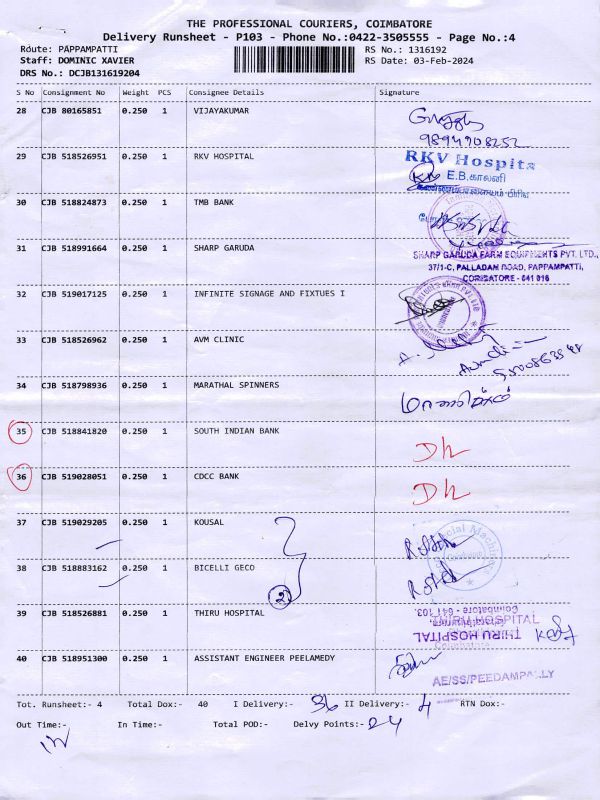 THE PROFESSIONAL COURIERS, COIMBATORE
Delivery Runsheet - P103 - Phone No.:0422-3505555 - Page No.:4
Route: PAPPAMPATTI RS No.: 1316192
Staff: DOMINIC XAVIER RS Date: 03-Feb-2024
DRS No.: DCJB131619204
S No Consignment No Weight PCS Consignee Details Signature
28 CJB 80165851 0.250 1 VIJAYAKUMAR
9894908252
29 CJB 518526951 0.250 1 RKV HOSPITAL RKV Hospita
E.B.காலனி
30 CJB 518824873 0.250 1 TMB BANK
31 CJB 518991664 0.250 1 SHARP GARUDA
SHARP GARUDA FARM EQUIPMENTS PVT. LTD.,
37/1-C, PALLADAM ROAD, PAPPAMPATTI,
COIMBATORE - 641 016
32 CJB 519017125 0.250 1 INFINITE SIGNAGE AND FIXTUES I
33 CJB 518526962 0.250 1 AVM CLINIC
34 CJB 518798936 0.250 1 MARATHAL SPINNERS
35 CJB 518841820 0.250 1 SOUTH INDIAN BANK DL
36 CJB 519028051 0.250 1 CDCC BANK DL
37 CJB 519029205 0.250 1 KOUSAL
38 CJB 518883162 0.250 1 BICELLI GECO
2
39 CJB 518526881 0.250 1 THIRU HOSPITAL
THIRU HOSPITAL
Coimbatore - 641 103.
THIRU HOSPITAL
40 CJB 518951300 0.250 1 ASSISTANT ENGINEER PEELAMEDY
AE/SS/PEEDAMPALLY
Tot. Runsheet:- 4 Total Dox:- 40 I Delivery:- 36 II Delivery:- 4 RTN Dox:-
Out Time:- In Time:- Total POD:- Delvy Points:- 24